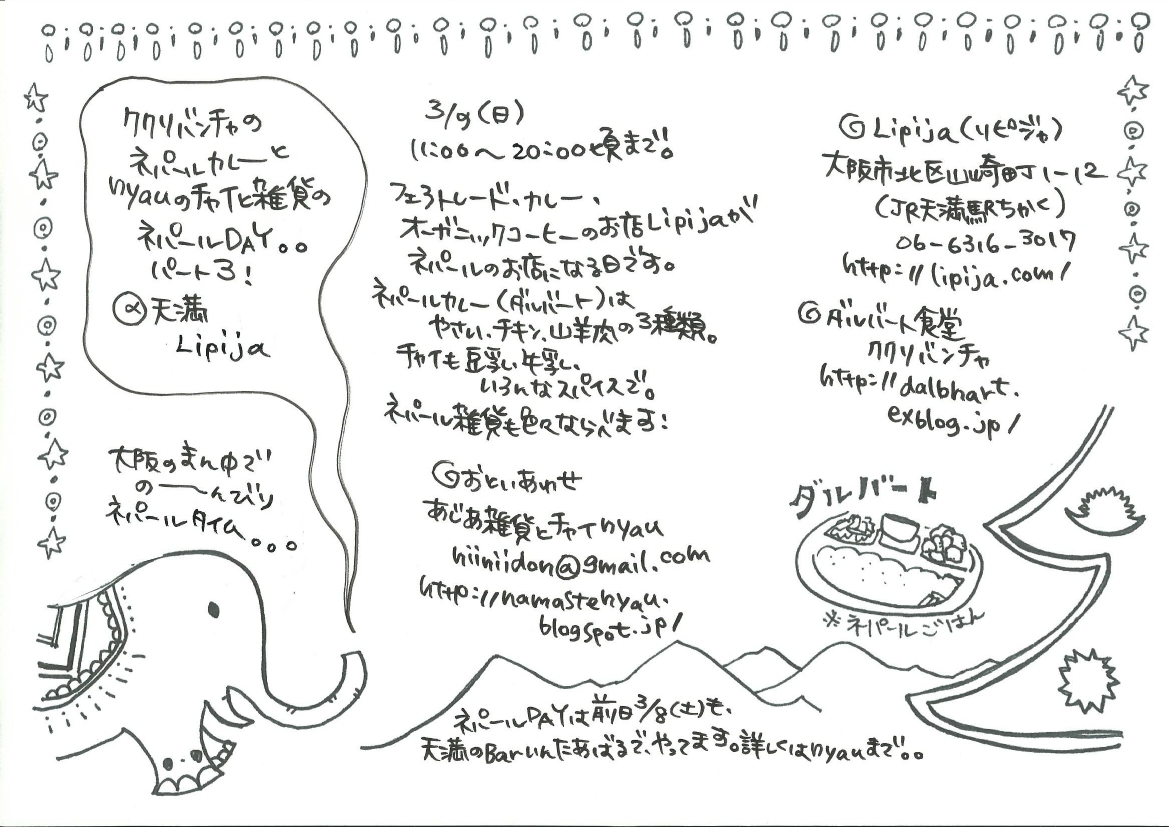 ククリバンチャの
ネパールカレーと
nyauのチャイと雑貨の
ネパールDAY。。
パート3!
@天満
Lipija
大阪のまん中で
の〜〜んびり
ネパールタイム。。。
3/9(日)
11:00〜20:00頃まで。
フェアトレード・カレー、
オーガニックコーヒーのお店Lipijaが
ネパールのお店になる日です。
ネパールカレー(ダルバート)は
やさい、チキン、山羊肉の3種類。
チャイも豆乳、牛乳、
いろんなスパイスで。
ネパール雑貨も色々ならべます!
◎おといあわせ
あじあ雑貨とチャイnyau
niiniidon@gmail.com
http://namastenyau.
blogspot.jp/
◎Lipija(リピジャ)
大阪市北区山崎町1-12
(JR天満駅ちかく)
06-6316-3017
http://lipija.com/
◎ダルバート食堂
ククリバンチャ
http://dalbhart.
exblog.jp/
ダルバート
※ネパールごはん
ネパールDAYは前日3/8(土)も、
天満のBarいんたあばるで、やってます。詳しくはnyauまで。。